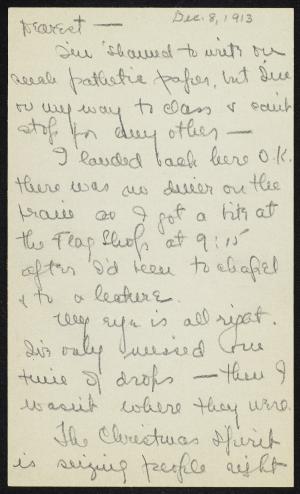 Dec. 8, 1913
Dearest —
I'm 'shamed to write on
such pathetic paper, but I'm
on my way to class & can't
stop for any other —
I landed back here O.K.
there was no diner on the
train so I got a bite at
the Flag Shop at 9:15
after I'd been to chapel
& to a lecture.
My eye is all right.
I've only missed one
time of drops — then I
wasn't where they were.
The Christmas Spirit
is seizing people right